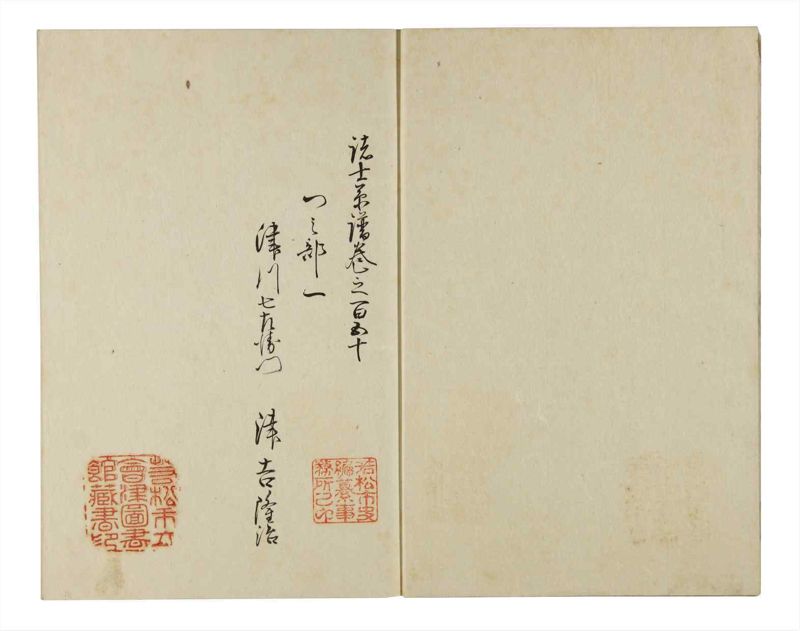 諸士系譜巻之百五十
つ之部一
津川七左衛門　津吉隆治
若松市史
編纂事
務所之印
若松市立
會津圖書
館藏書印